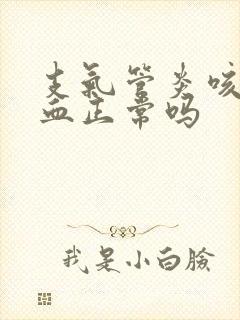 支氣管炎咳
血正常嗎
我是小白臉